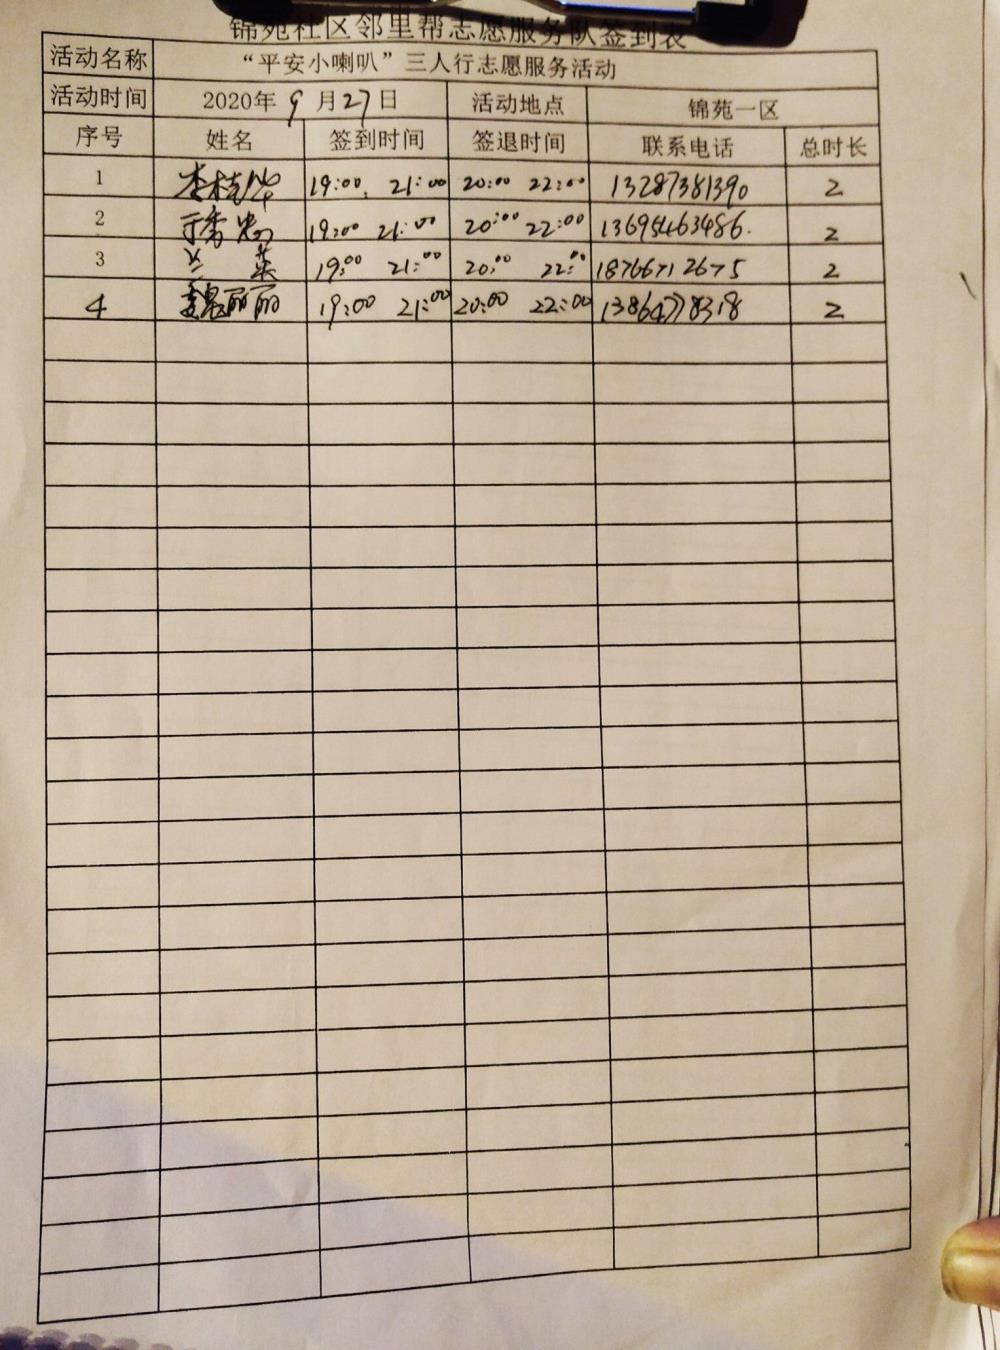 锦苑社区邻里帮志愿服务队签到表
活动名称 “平安小喇叭”三人行志愿服务活动
活动时间 2020年 9 月 27 日 活动地点 锦苑一区
序号 姓名 签到时间 签退时间 联系电话 总时长
1 李桂华 19:00 21:00 20:00 22:00 13287381390 2
2 19:00 21:00 20:00 22:00 13695463486 2
3 兰英 19:00 21:00 20:00 22:00 18766712675 2
4 魏丽丽 19:00 21:00 20:00 22:00 13864778318 2